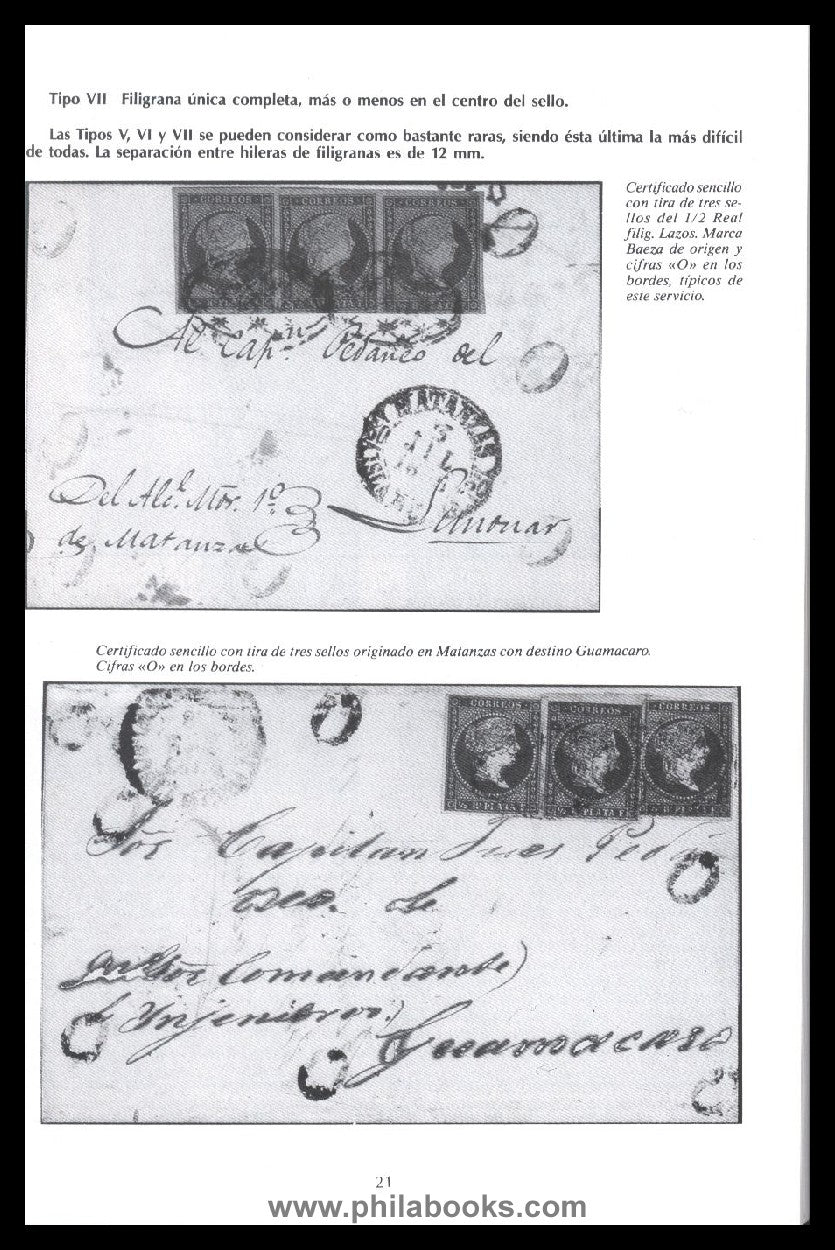 Tipo VII Filigrana única completa, más o menos en el centro del sello.
Las Tipos V, VI y VII se pueden considerar como bastante raras, siendo ésta última la más difícil
de todas. La separación entre hileras de filigranas es de 12 mm.
Certificado sencillo
con tira de tres se-
llos del 1/2 Real
filig. Lazos. Marca
Baeza de origen y
cifras «O» en los
bordes, típicos de
este servicio.
CORREOS CORREOS CORREOS
Al Cap.n Pedaneo del
MATANZAS
3
JUL
Del Alc.e Mor. 1º
de Matanzas
Limonar
Certificado sencillo con tira de tres sellos originado en Matanzas con destino Guamacaro.
Cifras «O» en los bordes.
CORREOS CORREOS CORREOS
½ R. PLATA F. ½ R. PLATA F. R. PLATA F.
Sor Capitan Juez Pedá
neo. de
Comandante)
de Injenieros)
Guamacaro
21
www.philabooks.com